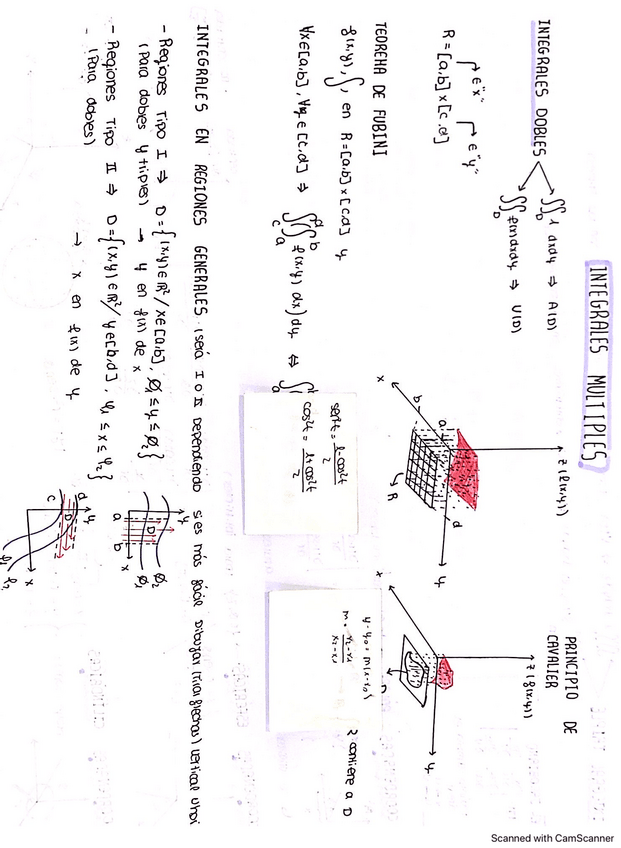 INTEGRALES MULTIPLES
INTEGRALES DOBLES
∬_D 1 dxdy ⇒ A(D)
∬_D f(x) dxdy ⇒ V(D)
e"x" e"y"
R = [a,b] x [c,d]
z (f(x,y))
a
b
d
x
y
R
PRINCIPIO DE
CAVALIER
z (f(x,y))
x
y
TEOREMA DE FUBINI
f(x,y), ∫, en R = [a,b] x [c,d] y
∀x∈[a,b], ∀y∈[c,d] ⇒ f(x,y) dx) dy ⇔
sen²t = 1-cos2t / 2
cos²t = 1+cos2t / 2
y-y₀ = m(x-x₀)
m =
contiene a D
INTEGRALES EN REGIONES GENERALES (será I o II dependiendo si es más fácil dibujar (tirar flechas) vertical u hori
- Regiones Tipo I ⇒ D = {(x,y) ∈ ℝ² / x∈[a,b], Ø₁ ≤ y ≤ Ø₂}
(Para dobles y triples) → y en f(x) de x
- Regiones Tipo II ⇒ D = {(x,y) ∈ ℝ² / y∈[b,d], φ₁ ≤ x ≤ φ₂}
- (Para dobles) → x en f(x) de y
y
a
b
D
x
Ø₂
Ø₁
d
c
D
y
x
Scanned with CamScanner